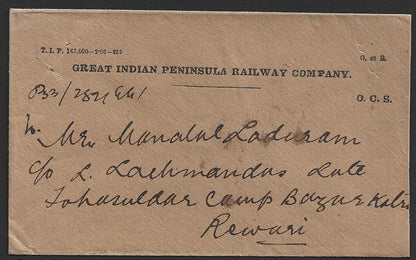 T. I. P. 162,000—2-06—255
G. 48 R.
GREAT INDIAN PENINSULA RAILWAY COMPANY.
O. C. S.
To
Mr. Manalal Laduram
c/o L. Lachmandas Late
Tahasuldar Camp Bazar
Rewari